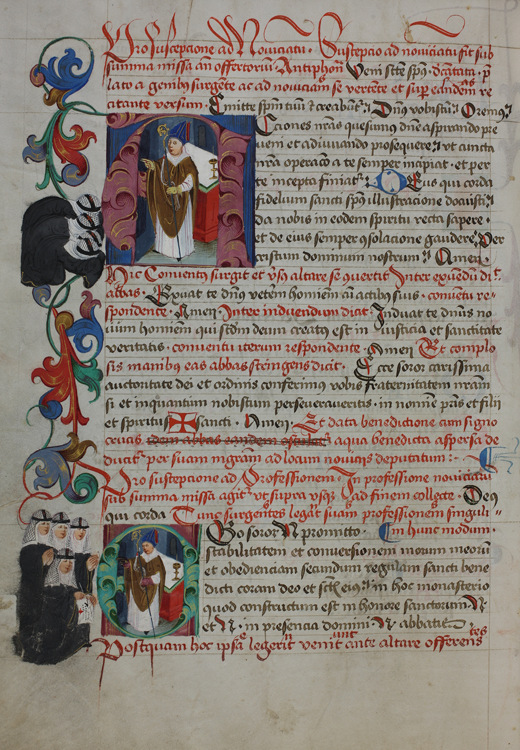 Pro susceptione ad Noviciatū · Susceptio ad noviciatū fit sub
summa missa añ offertoriū Antiphoñ Veni sct̄e sp̄s · Cantata · p
lato a genibus surgete ac ad noviciam se vertete et sup̱ eandem re
citante versum Emitte sp̄m tuū & creabunt̃ · Dñus vobiscū · Oremus
Ctiones nr̄as quesumus dñe aspirando pre
veni et adiuvando prosequere · vt cuncta
nr̄a operacō a te semper incipiat · et per
te incepta finiat̃ · Deus qui corda
fidelium sancti spūs illustracione docuisti ·
da nobis in eodem spiritu recta sapere ·
et de eius semper ɔsolacione gaudere · Per
cristum dominum nostrum · Amen ·
Hic Conventus surgit et v̄sus altare se ɔvertit · Inter exuēdū dic̄
abbas · Exuat te dñus veterē hominē cū actibus suis · conventu re-
spondente · Amen Inter induendum dicit · Induat te dñus no
vum hominem qui scdm deum creatus est in Iusticia et sanctitate
veritatis · conventu iterum respondente Amen Et complo
sis manibus eas abbas stringens dicit · Et cre soror carissima
auctoritate dei et ordinis conferimus vobis Fraternitatem nr̄am
si et inquantum nobiscum perseveraveritis · in nomine patris et filii
et spiritus ✠ sancti · Amen · Et data benedictione cum signo
crucis dem abbas eandem et aqua benedicta aspersa de
ducit̃ per suam mg̃ram ad locum noviciis deputatum :-
Pro susceptione ad Professionem · In professione noviciatus
sub summa missa agit̃ vt supra vsque ad finem collecte · Deus
qui corda Tunc surgentes legāt suam professionem singuli-
Ego soror N promitto · In hunc modum ·
stabilitatem et conversionem morum meorū
et obedienciam secundum regulam sancti bene
dicti coram deo et sctīs eius · in hoc monasterio
quod constructum est in honore sanctorum N
et N · in presencia domini N abbatis
Postquam hoc ipsa legerit venit ante altare offerens